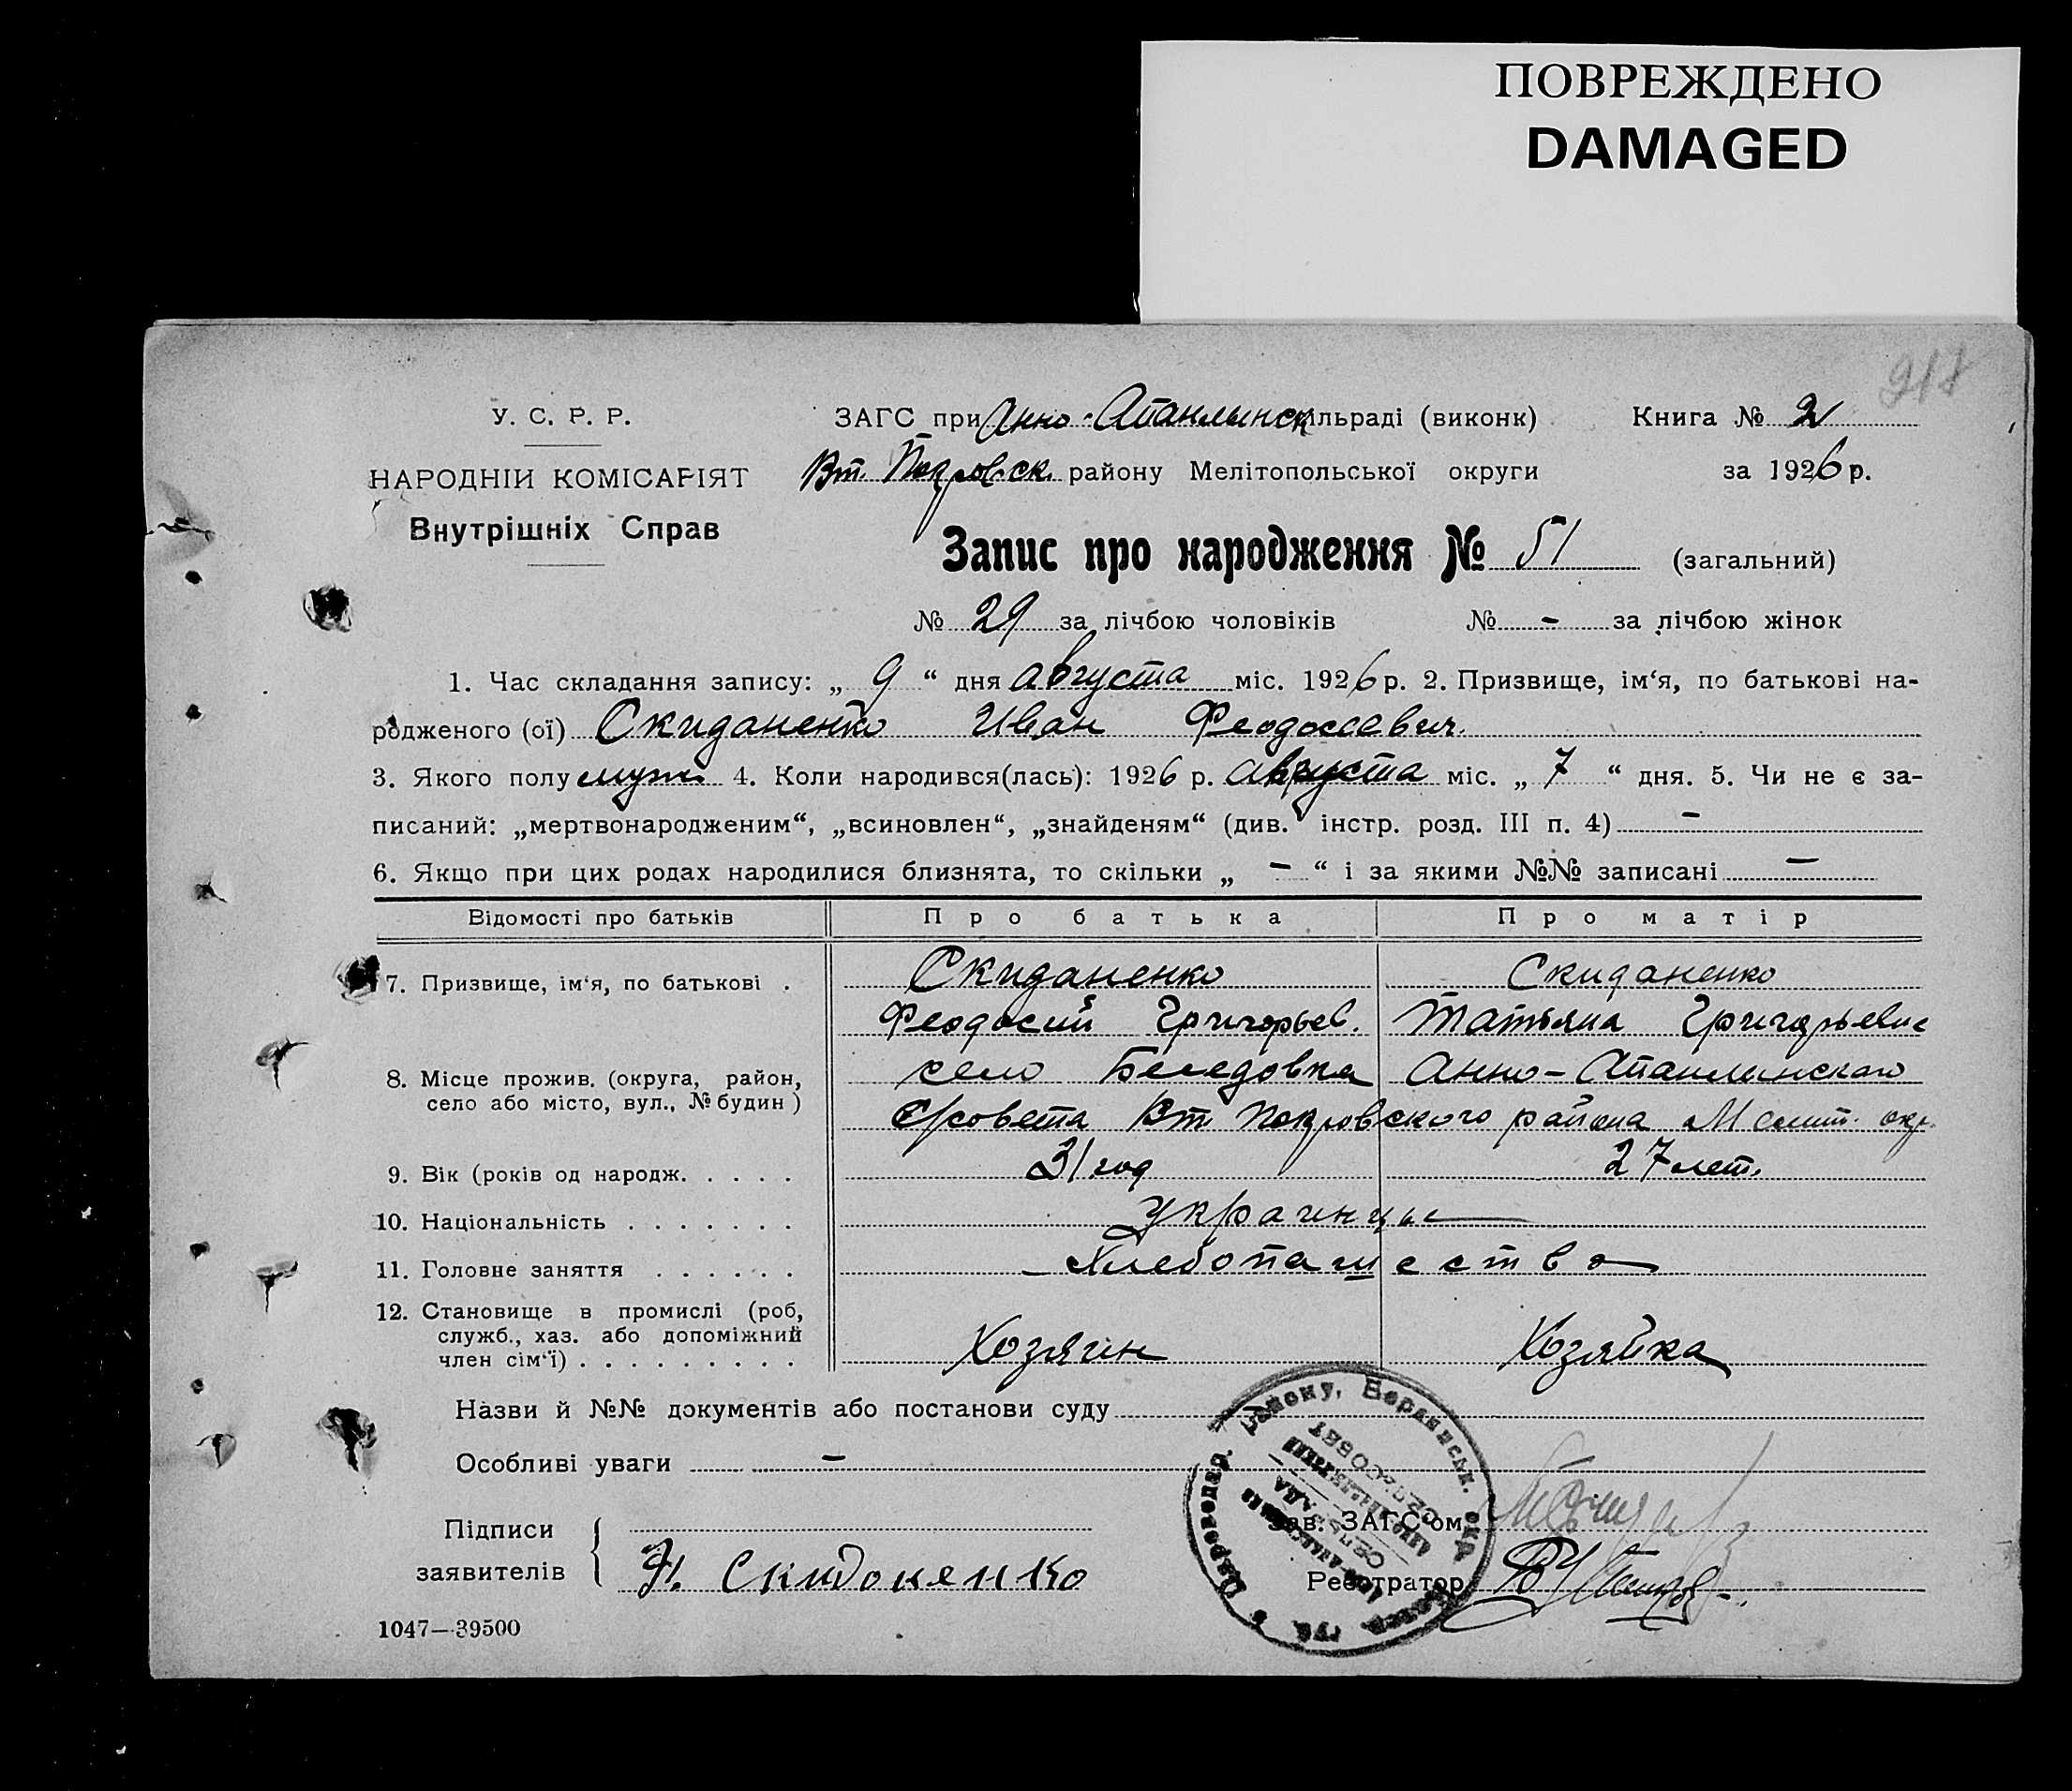 ПОВРЕЖДЕНО
DAMAGED
218
У. С. Р. Р.
ЗАГС при Анно-Апанлынск ільраді (виконк)
Книга № 2
НАРОДНІИ КОМІСАРІЯТ
Вт. Покровск. району Мелітопольської округи
за 1926 р.
Внутрішніх Справ
Запис про народження № 51 (загальний)
№ 29 за лічбою чоловіків № - за лічбою жінок
1. Час складання запису: „ 9 “ дня августа міс. 1926 р. 2. Призвище, ім‘я, по батькові на-
родженого (ої) Скиданенко Иван Феодосевич.
3. Якого полу муж. 4. Коли народився(лась): 1926 р. августа міс. „ 7 “ дня. 5. Чи не є за-
писаний: „мертвонародженим“, „всиновлен“, „знайденям“ (див. інстр. розд. III п. 4) -
6. Якщо при цих родах народилися близнята, то скільки „ - “ і за якими №№ записані -
Відомості про батьків Про батька Про матір
7. Призвище, ім‘я, по батькові . Скиданенко Скиданенко
Феодосий Григорьев. Татьяна Григорьевна
8. Місце прожив. (округа, район, село Беседовка Анно-Апанлинского
село або місто, вул., № будин)
С/совета Вт. Покровского района Мелит. окр.
9. Вік (років од народж. . . . . 31 год 27 лет.
10. Національність . . . . . . . Украинцы
11. Головне заняття . . . . . . Хлебопашество
12. Становище в промислі (роб,
служб., хаз. або допоміжний
член сім‘ї) . . . . . . . . . Хозяин Хозяйка
Назви й №№ документів або постанови суду
Особливі уваги -
Підписи
заявителів
Зав. ЗАГС‘ом
Ф. Скидоненко
Реєстратор
1047—39500
району, Бердянськ. окр.
СЕЛЬСОВЕТ